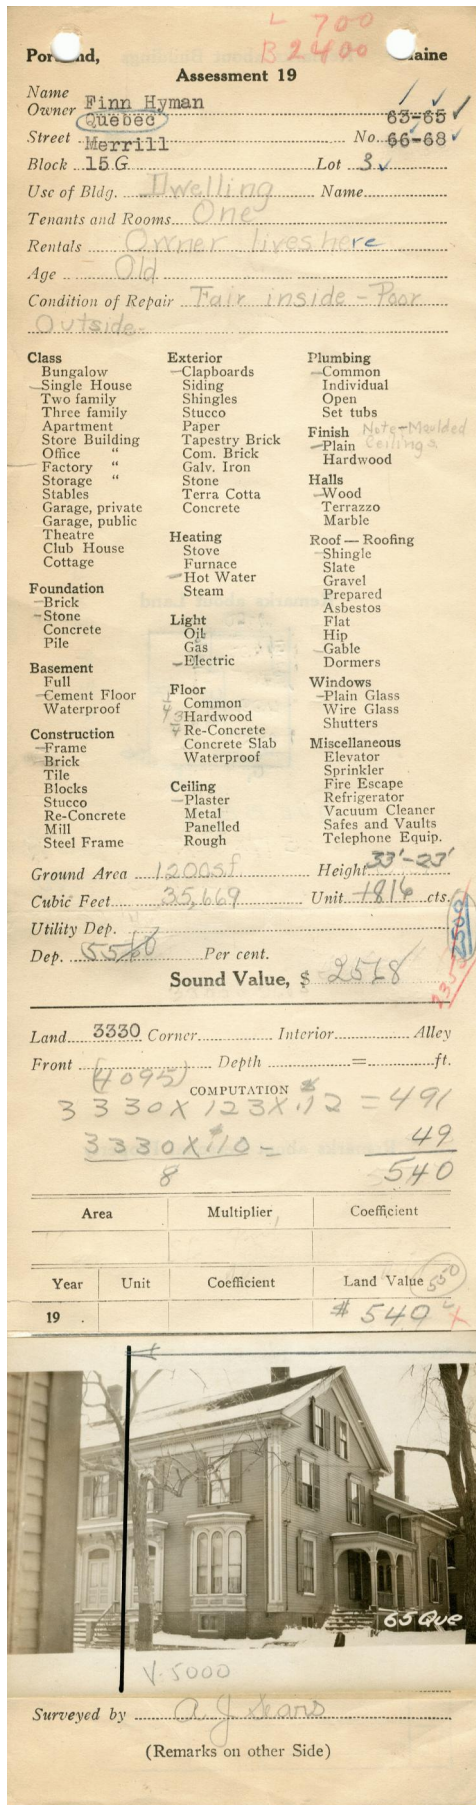 L 700
B 2400
Portland, Maine
Assessment 19
Name
Owner Finn Hyman
Quebec 63-65
Street Merrill No. 66-68
Block 15 G Lot 3
Use of Bldg. Dwelling Name
Tenants and Rooms One
Rentals Owner lives here
Age Old
Condition of Repair Fair inside - Poor
Outside-
Class
Bungalow
Single House
Two family
Three family
Apartment
Store Building
Office "
Factory "
Storage "
Stables
Garage, private
Garage, public
Theatre
Club House
Cottage
Foundation
Brick
Stone
Concrete
Pile
Basement
Full
Cement Floor
Waterproof
Construction
Frame
Brick
Tile
Blocks
Stucco
Re-Concrete
Mill
Steel Frame
Exterior
Clapboards
Siding
Shingles
Stucco
Paper
Tapestry Brick
Com. Brick
Galv. Iron
Stone
Terra Cotta
Concrete
Heating
Stove
Furnace
Hot Water
Steam
Light
Oil
Gas
Electric
Floor
1/4 Common
3/4 Hardwood
Re-Concrete
Concrete Slab
Waterproof
Ceiling
Plaster
Metal
Panelled
Rough
Plumbing
Common
Individual
Open
Set tubs
Finish Note-Moulded
Plain Ceilings
Hardwood
Halls
Wood
Terrazzo
Marble
Roof — Roofing
Shingle
Slate
Gravel
Prepared
Asbestos
Flat
Hip
Gable
Dormers
Windows
Plain Glass
Wire Glass
Shutters
Miscellaneous
Elevator
Sprinkler
Fire Escape
Refrigerator
Vacuum Cleaner
Safes and Vaults
Telephone Equip.
Ground Area 1200sf Height 33'-23'
Cubic Feet 35,669 Unit 16 cts.
Utility Dep. 2500
Dep. Per cent.
Sound Value, $ 2568
Land 3330 Corner Interior Alley
Front Depth = ft.
(4095)
COMPUTATION
3330 X 123 X .12 = 491
3330 X .10 = 49
8 540
Area Multiplier Coefficient
Year Unit Coefficient Land Value 550
19 . $ 540
65 Que
V. 5000
Surveyed by A J Sears
(Remarks on other Side)